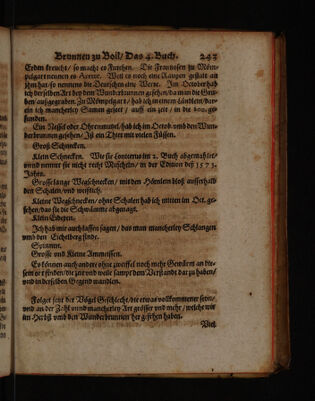 Brunnen zu Boll / Das 4. Buch. 243
Erden kreucht / so macht es Furchen. Die Frantzosen zu Möm-
pelgart nennen es Avene. Weil es noch eine Raupen gestalt an
ihm hat / so nennens die Deutschen eine Werre. Im October hab
ich derselben Art bey dem Wunderbrunnen gesehen / da man die Gru-
ben / außgegraben. Zu Mömpelgart / hab ich in einem Ländlein / dar-
en ich mancherley Samen gesäet / auff ein zeit / in die 100. ge-
funden.
Ein Nessel oder Ohrenmütel / hab ich im Octob. umb den Wun-
derbrunnen gesehen. Ist ein Thier mit vielen Füssen.
Groß Schnecken.
Klein Schnecken. Wie sie Lonicerus im 2. Buch abgemahlet /
und nennet sie nicht recht Muscheln / in der Edition des 1573.
Jahrs.
Grosse lange Wegschnecken / mit den Hörnlein bloß ausserhalb
den Schalen / und weißlich.
Kleine Wegschnecken / ohne Schalen hab ich mitten im Oct. ge-
sehen / das sie die Schwämme abgenagt.
Klein Eidexen.
Ich hab mir auch lassen sagen / das man mancherley Schlangen
umb den Eichelberg finde.
Spinnen.
Grosse und Kleine Ammeissen.
Es können auch andere ohne zweiffel noch mehr Gewürm an die-
sem ort finden / die zeit und weile sampt dem Verstandt dar zu haben /
und in derselben Gegend wandlen.
Folget jetzt der Vögel Geschlecht / die etwas vollkommener seyn /
und an der Zahl unnd mancherley Art grösser und mehr / welche wir
im Herbst umb den Wunderbrunnen her gesehen haben.
Viel